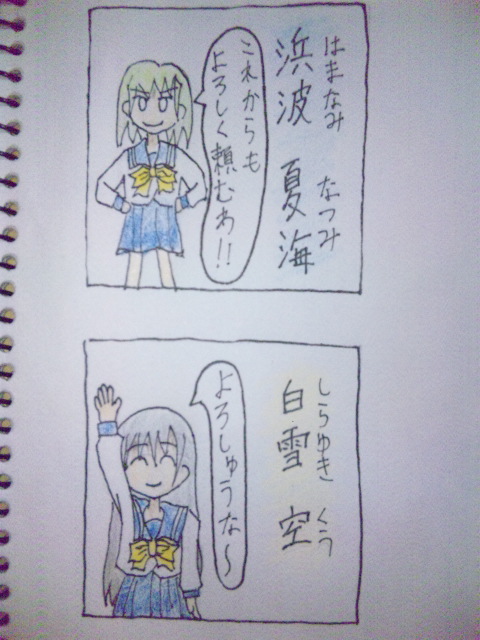 はまなみ なつみ
浜波 夏海
これからも
よろしく頼むわ!!
しらゆき くう
白雪 空
よろしゅうな〜